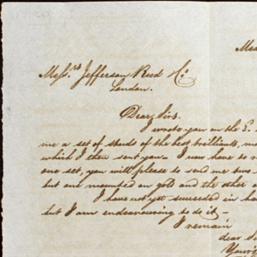 Mess.rs Jefferson Reed & Co:
London.
Dear Sirs.
I wrote you on the 5.
me a set of studs of the best brilliants, m
which I then sent you. I now have to
one set, you will please to send me two
but one mounted in gold and the other
I have not yet succeeded in
but I am endeavouring to do it —
I remain
dear Si
Your